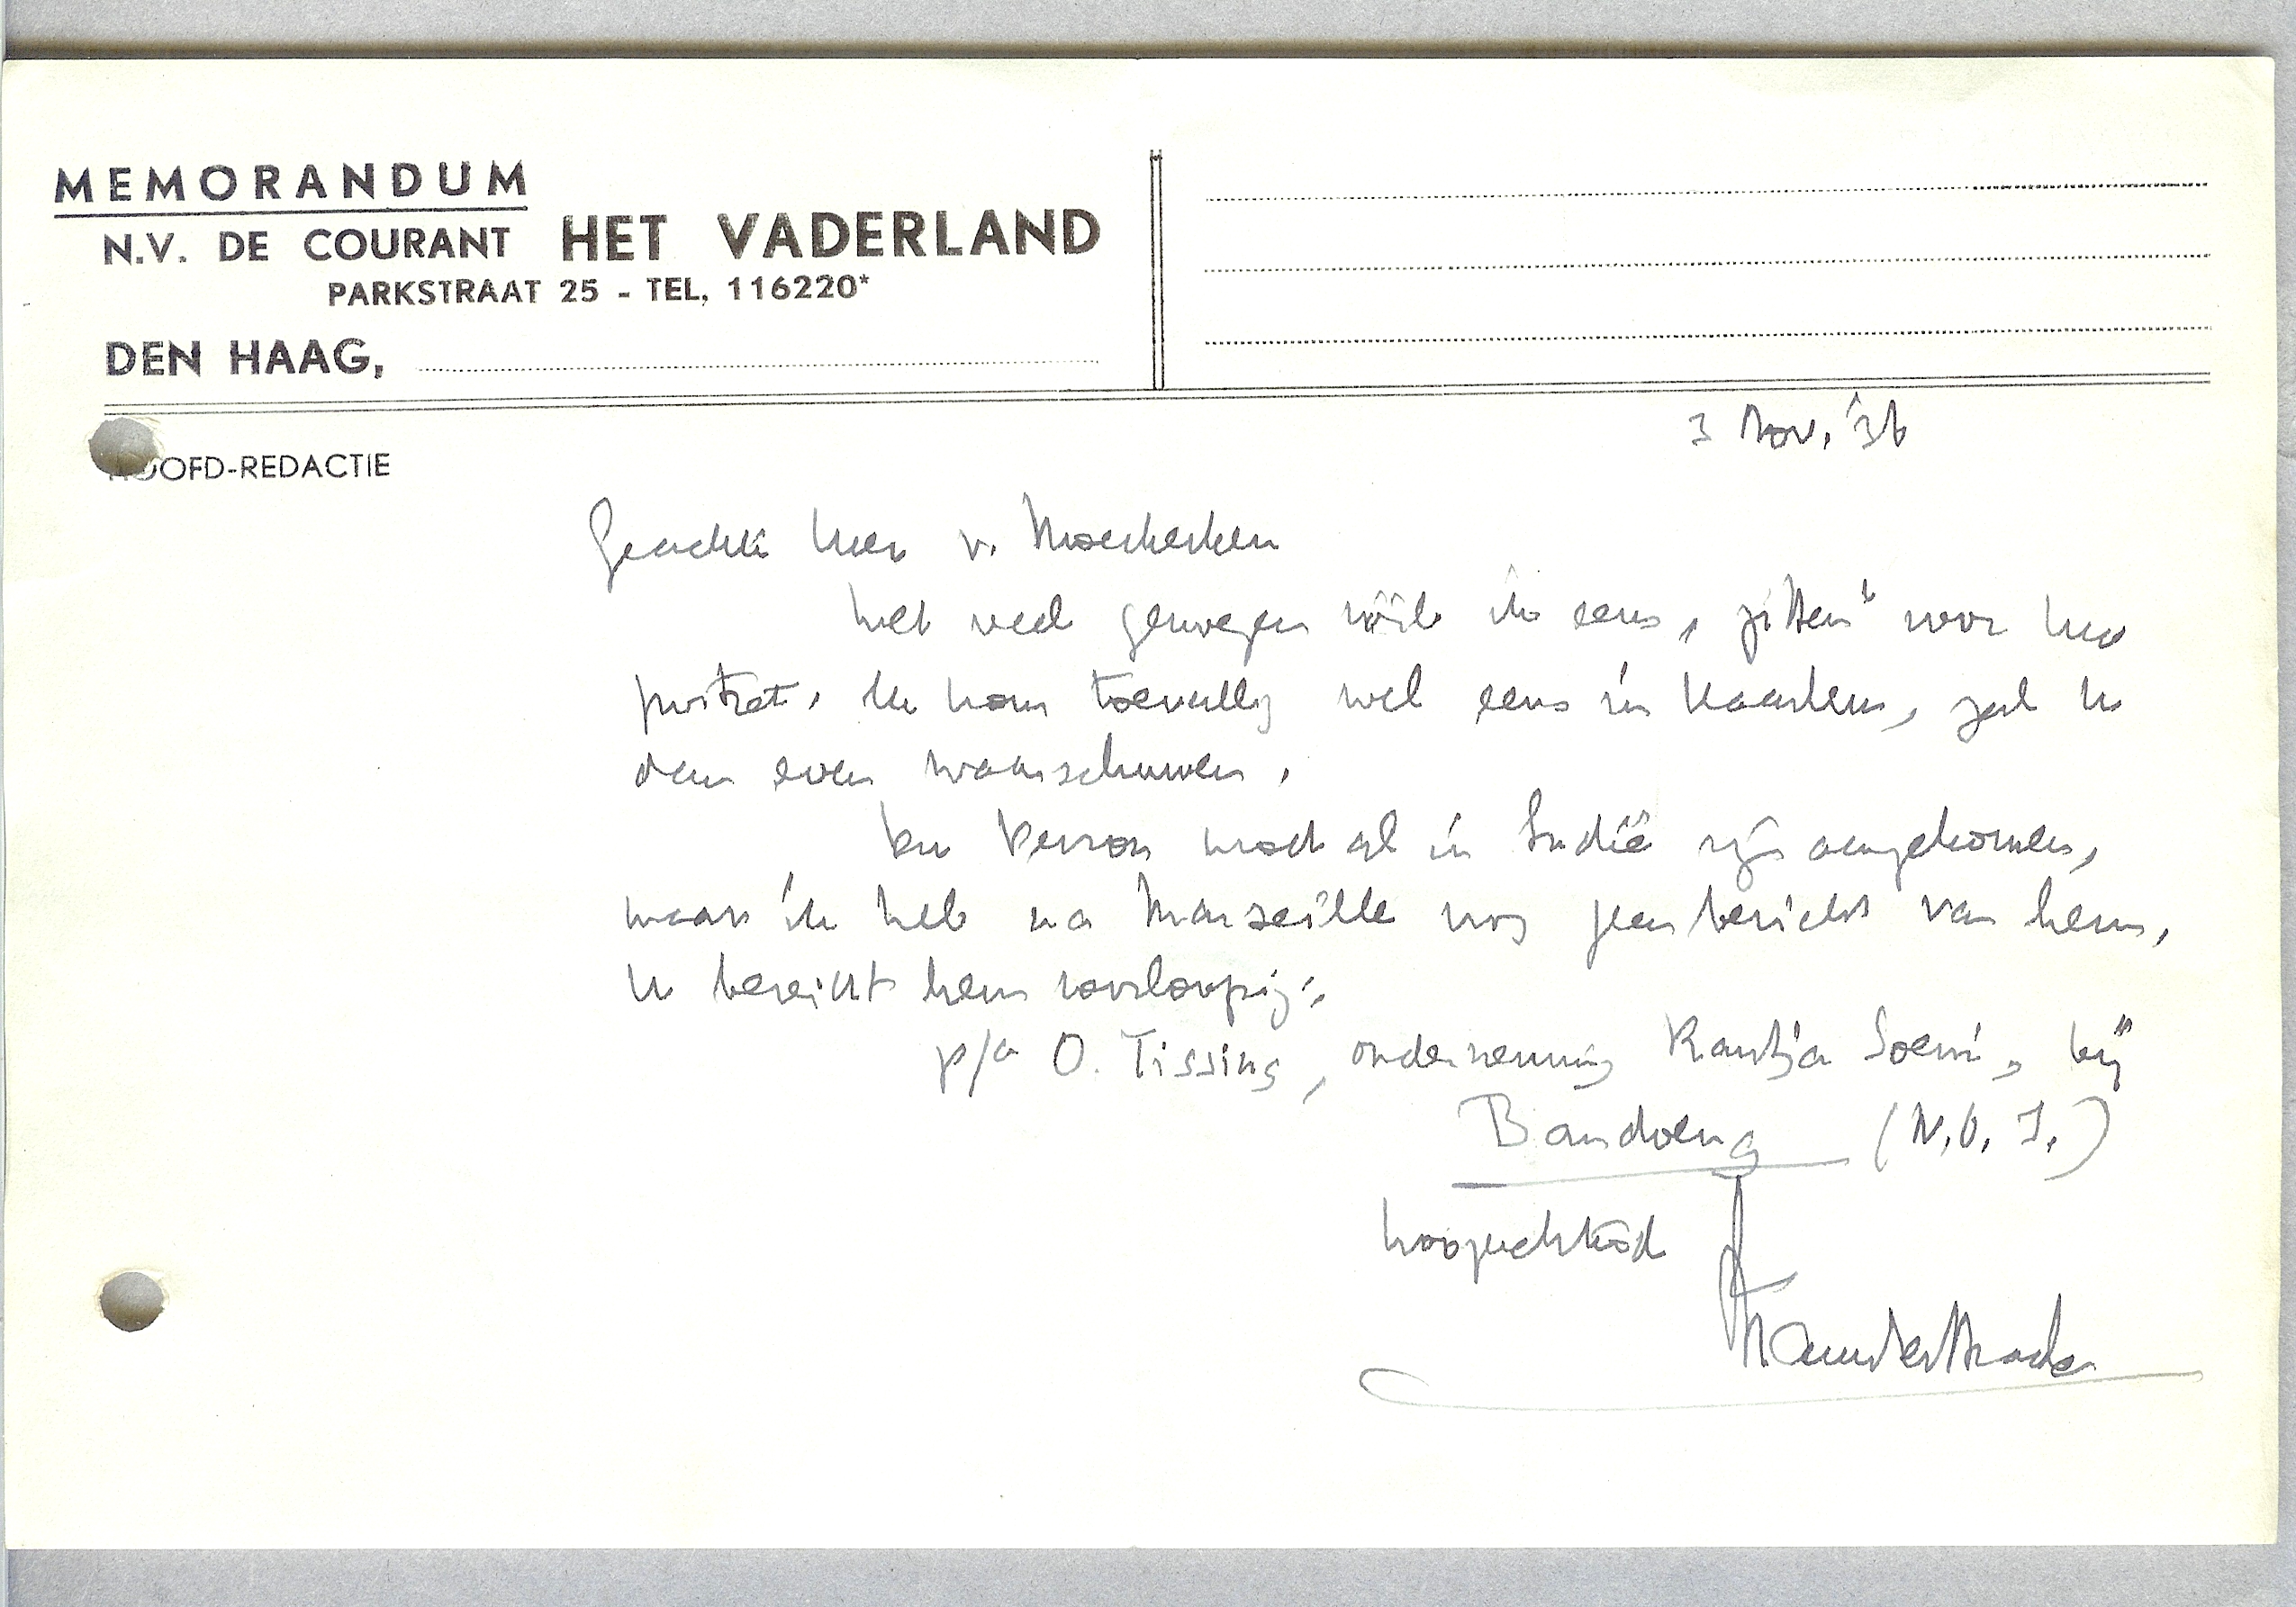 MEMORANDUM
N.V. DE COURANT HET VADERLAND
PARKSTRAAT 25 - TEL. 116220*
DEN HAAG,
HOOFD-REDACTIE
3 Nov. '36
Geachte heer v. Moerkerken
Met veel genoegen wil ik eens „zitten" voor Uw
portret. Ik kom toevallig wel eens in Haarlem, zal U
dan even waarschuwen.
Du Perron moet al in Indië zijn aangekomen,
maar ik heb na Marseille nog geen bericht van hem.
U bereikt hem voorloopig:
p/a O. Tissing, onderneming Rantja Soeni, bij
Bandoeng (N.O.I.)
hoogachtend
MennoterBraak